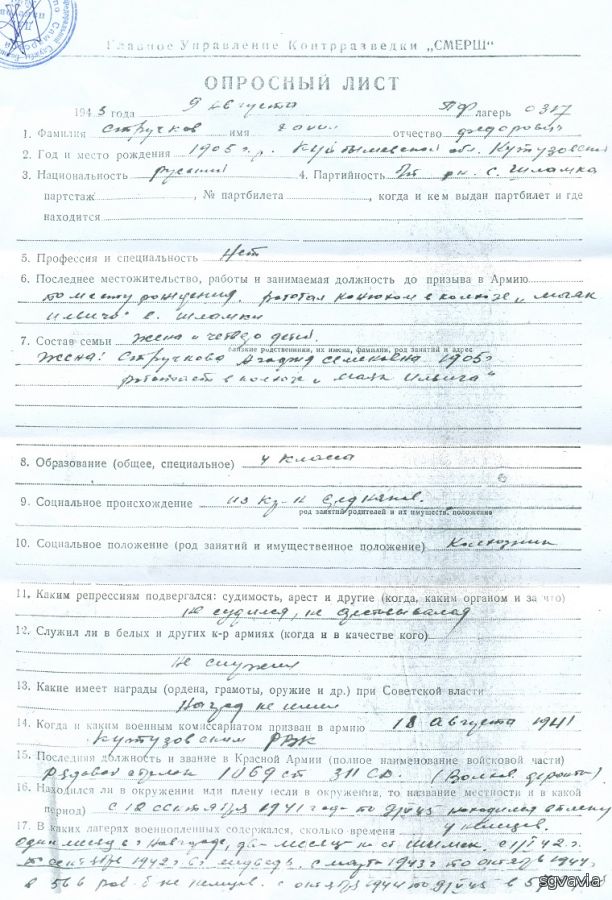 Главное Управление Контрразведки „СМЕРШ“
ОПРОСНЫЙ ЛИСТ
1945 года 9 августа ПФ лагерь 0317
1. Фамилия Стручков имя отчество Федорович
2. Год и место рождения 1905 г.р. Куйбышевской обл. Кутузовский
3. Национальность русский 4. Партийность рн. с. Шламка
партстаж , № партбилета , когда и кем выдан партбилет и где
находится
5. Профессия и специальность Нет
6. Последнее местожительство, работы и занимаемая должность до призыва в Армию
по месту рождения. работал конюхом в колхозе „Маяк
Ильича" с. Шламки
7. Состав семьи жена и четверо детей.
близкие родственники, их имена, фамилии, род занятий и адрес
Жена: Стручкова Семеновна 1905 г
работает в колхозе „Маяк Ильича"
8. Образование (общее, специальное) 4 класса
9. Социальное происхождение из кр-н средняков.
род занятий родителей и их имуществ. положение
10. Социальное положение (род занятий и имущественное положение) Колхозник
11. Каким репрессиям подвергался: судимость, арест и другие (когда, каким органом и за что)
не судился, не арестовывался
12. Служил ли в белых и других к-р армиях (когда и в качестве кого)
Не служил
13. Какие имеет награды (ордена, грамоты, оружие и др.) при Советской власти
Наград не имел
14. Когда и каким военным комиссариатом призван в армию 18 августа 1941
Кутузовским РВК
15. Последняя должность и звание в Красной Армии (полное наименование войсковой части)
Рядовой стрелок 1069 сп 311 СД. (Волхов. фронт)
16. Находился ли в окружении или плену (если в окружении, то название местности и в какой
период) с 12 сентября 1941 года по 9/V 45 находился в плену
17. В каких лагерях военнопленных содержался, сколько времени у немцев.
один месяц в г Новгороде, два месяца на ст Шимск. с 1942 г.
по сентябрь 1942 г. с марта 1943 г по октябрь 1944 г.
в 566 раб. б-не немцев. с октября 1944 по 9/V 45 в
sgvavia